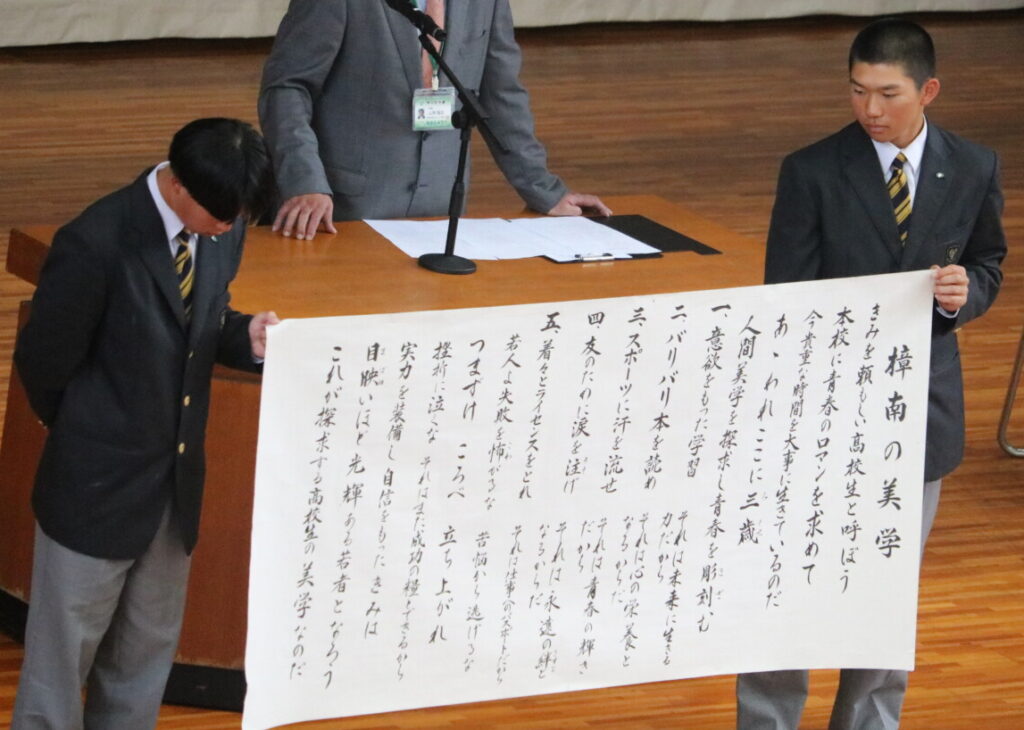 樟南の美学
きみを頼もしい高校生と呼ぼう
本校に青春のロマンを求めて
今貴重な時間を大事に生きているのだ
あゝわれここに三歳
人間美学を探求し青春を彫刻む
一、意欲をもった学習 それは未来に生きる力だから
二、バリバリ本を読め それは心の栄養となるからだ
三、スポーツに汗を流せ それは青春の輝きだから
四、友のために涙を注げ それは永遠の絆となるからだ
五、着々とライセンスをとれ それは仕事へのパスポートだから
若人よ失敗を怖がるな 苦悩から逃げるな
つまずけ ころべ 立ち上がれ
挫折に泣くな それはまた成功の糧とできるから
実力を装備し自信をもったきみは
目映いほど光輝ある若者となろう
これが探求する高校生の美学なのだ